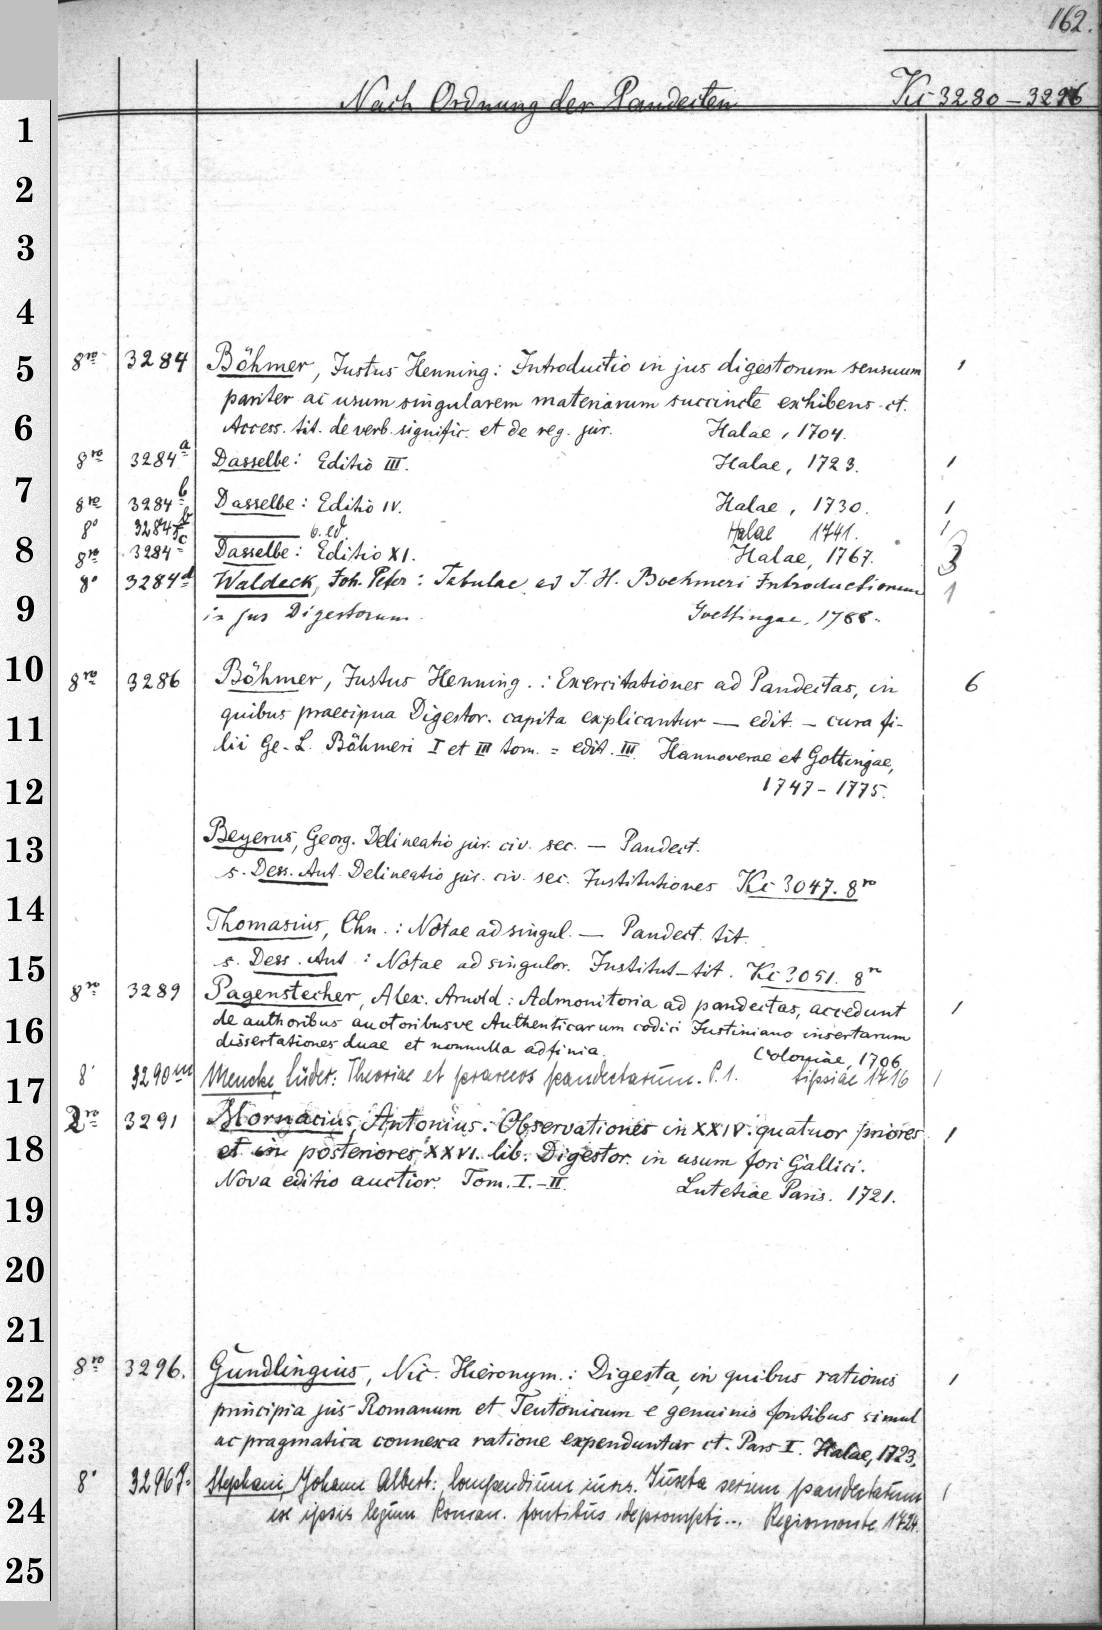 162.
Nach Ordnung der Pandecten Kc 3280 – 3296
1
2
3
4
5 8ro 3284 Böhmer, Justus Henning: Introductio in jus digestorum sensum 1
pariter ac usum singularem materiarum succincte exhibens ct.
6 Access. tit. de verb. signific. et de reg. jur. Halae, 1704.
8ro 3284a Dasselbe: Editio III. Halae, 1723. 1
7
8ro 3284b Dasselbe: Editio IV. Halae, 1730. 1
8° 3284 6. ed. Halae 1741. 1
8 8ro 3284c Dasselbe: Editio XI. Halae, 1767.
8° 3284d Waldeck, Joh. Peter: Tabulae ad J. H. Boehmeri Introductionem 1
9 in jus Digestorum. Goettingae, 1788.
10 8ro 3286 Böhmer, Justus Henning.: Exercitationes ad Pandectas, in 6
11 quibus praecipua Digestor. capita explicantur — edit. – cura fi-
lii Ge. L. Böhmeri I et III tom. = edit. III. Hannoverae et Gottingae,
12 1747 – 1775.
13 Beyerus, Georg. Delineatio jur. civ. sec. — Pandect.
s. Dess. Aut. Delineatio jur. civ. sec. Institutiones Kc 3047. 8ro
14 Thomasius, Chn.: Notae ad singul. — Pandect. tit.
15 s. Dess. Aut: Notae ad singulor. Institut–tit. Kc 3051. 8ro
8ro 3289 Pagenstecher, Alex. Arnold: Admonitoria ad pandectas, accedunt 1
16 de authoribus auctoribusve Authenticarum codici Justiniano insertarum
dissertationes duae et nonnulla adfinia. Coloniae, 1706
17 8° 3290m Mencke, Lüder: Theoriae et praxeos pandectarum. P. 1. Lipsiae 1716 1
2ro 3291 Mornacius, Antonius: Observationes in XXIV. quatuor priores 1
18 et in posteriores XXVI. lib. Digestor. in usum fori Gallici.
Nova editio auctior. Tom. I.–II. Lutetiae Paris. 1721.
19
20
21
8ro 3296. Gundlingius, Nic. Hieronym.: Digesta, in quibus rationis 1
22 principia jus Romanum et Teutonicum e genuinis fontibus simul
23 ac pragmatica connexa ratione expenduntur ct. Pars I. Halae, 1723.
8° 3296 Stephani, Johann Albert: Compendium iuris. Juxta seriem pandectarum 1
24 ex ipsis legum Roman. fontibus depromti... Regiomonte 1724.
25